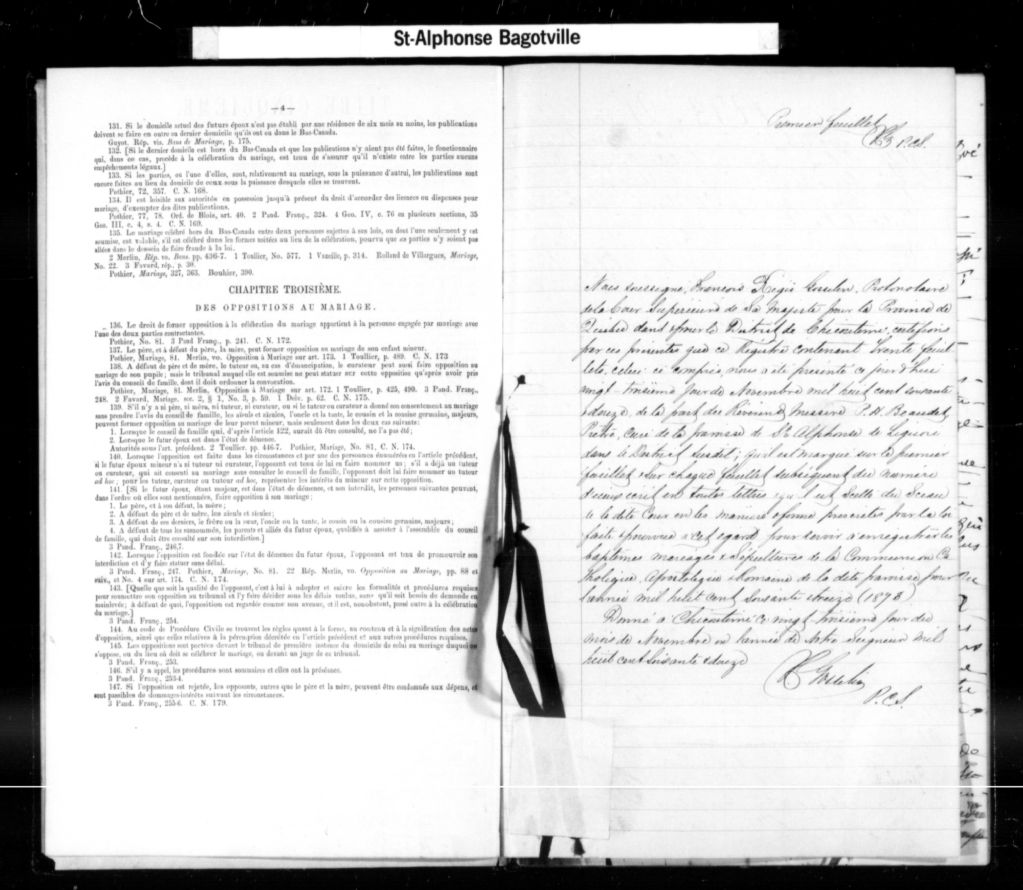 St-Alphonse Bagotville
—4—
131. Si le domicile actuel des futurs époux n'est pas établi par une résidence de six mois au moins, les publications
doivent se faire en outre au dernier domicile qu'ils ont eu dans le Bas-Canada.
Guyot. Rép. vis. Bans de Mariage, p. 175.
132. [Si le dernier domicile est hors du Bas-Canada et que les publications n'y aient pas été faites, le fonctionnaire
qui, dans ce cas, procède à la célébration du mariage, est tenu de s'assurer qu'il n'existe entre les parties aucuns
empêchements légaux.]
133. Si les parties, ou l'une d'elles, sont, relativement au mariage, sous la puissance d'autrui, les publications sont
encore faites au lieu du domicile de ceux sous la puissance desquels elles se trouvent.
Pothier, 72, 357. C. N. 168.
134. Il est loisible aux autorités en possession jusqu'à présent du droit d'accorder des licences ou dispenses pour
mariage, d'exempter des dites publications.
Pothier, 77, 78. Ord. de Blois, art. 40. 2 Pand. Franç., 324. 4 Geo. IV, c. 76 en plusieurs sections, 35
Geo. III, c. 4, s. 4. C. N. 169.
135. Le mariage célébré hors du Bas-Canada entre deux personnes sujettes à ses lois, ou dont l'une seulement y est
soumise, est valable, s'il est célébré dans les formes usitées au lieu de la célébration, pourvu que ces parties n'y soient pas
allées dans le dessein de faire fraude à la loi.
2 Merlin, Rép. vo. Bans, pp. 436-7. 1 Toullier, No. 577. 1 Vazeille, p. 314. Rolland de Villargues, Mariage,
No. 22. 3 Favard, rép., p. 30.
Pothier, Mariage, 327, 363. Bouhier, 390.
CHAPITRE TROISIÈME.
DES OPPOSITIONS AU MARIAGE.
136. Le droit de former opposition à la célébration du mariage appartient à la personne engagée par mariage avec
l'une des deux parties contractantes.
Pothier, No. 81. 3 Pand Franç., p. 241. C. N. 172.
137. Le père, et à défaut du père, la mère, peut former opposition au mariage de son enfant mineur.
Pothier, Mariage, 81. Merlin, vo. Opposition à Mariage sur art. 173. 1 Toullier, p. 489. C. N. 173
138. A défaut de père et de mère, le tuteur ou, au cas d'émancipation, le curateur peut aussi faire opposition au
mariage de son pupile; mais le tribunal auquel elle est soumise ne peut statuer sur cette opposition qu'après avoir pris
l'avis du conseil de famille, dont il doit ordonner la convocation.
Pothier, Mariage, 81. Merlin, Opposition à Mariage sur art. 172. 1 Toullier, p. 425, 490. 3 Pand. Franç.,
248. 2 Favard, Mariage, sec. 2, § 1, No. 3, p. 59. 1 Delv. p. 62. C. N. 175.
139. S'il n'y a ni père, ni mère, ni tuteur, ni curateur, ou si le tuteur ou curateur a donné son consentement au mariage
sans prendre l'avis du conseil de famille, les aïeuls et aïeules, l'oncle et la tante, le cousin et la cousine germains, majeurs,
peuvent former opposition au mariage de leur parent mineur, mais seulement dans les deux cas suivants:
1. Lorsque le conseil de famille qui, d'après l'article 122, aurait dû être consulté, ne l'a pas été;
2. Lorsque le futur époux est dans l'état de démence.
Autorités sous l'art. précédent. 2 Toullier, pp. 446-7. Pothier, Mariage, No. 81, C. N. 174.
140. Lorsque l'opposition est faite dans les circonstances et par une des personnes énumérées en l'article précédent,
si le futur époux mineur n'a ni tuteur ni curateur, l'opposant est tenu de lui en faire nommer un; s'il a déjà un tuteur
ou curateur, qui ait consenti au mariage sans consulter le conseil de famille, l'opposant doit lui faire nommer un tuteur
ad hoc; pour les tuteur, curateur ou tuteur ad hoc, représenter les intérêts du mineur sur cette opposition.
141. [Si le futur époux, étant majeur, est dans l'état de démence, et non interdit, les personnes suivantes peuvent,
dans l'ordre où elles sont mentionnées, faire opposition à son mariage:
1. Le père, et à son défaut, la mère;
2. A défaut de père et de mère, les aïeuls et aïeules;
3. A défaut de ces derniers, le frère ou la sœur, l'oncle ou la tante, le cousin ou la cousine germains, majeurs;
4. A défaut de tous les susnommés, les parents et alliés du futur époux, qualifiés à assister à l'assemblée du conseil
de famille, qui doit être consulté sur son interdiction.]
3 Pand. Franç., 246,7.
142. Lorsque l'opposition est fondée sur l'état de démence du futur époux, l'opposant est tenu de promouvoir son
interdiction et d'y faire statuer sans délai.
3 Pand. Franç., 247. Pothier, Mariage, No. 81. 22 Rép. Merlin, vo. Opposition au Mariage, pp. 88 et
suiv., et No. 4 sur art. 174. C. N. 174.
143. [Quelle que soit la qualité de l'opposant, c'est à lui à adopter et suivre les formalités et procédures requises
pour soumettre son opposition au tribunal et l'y faire décider sous les délais voulus, sans qu'il soit besoin de demande en
mainlevée; à défaut de quoi, l'opposition est regardée comme non avenue, et il est, nonobstant, passé outre à la célébration
du mariage.]
3 Pand. Franç., 254.
144. Au code de Procédure Civile se trouvent les règles quant à la forme, au contenu et à la signification des actes
d'opposition, ainsi que celles relatives à la péremption décrétée en l'article précédent et aux autres procédures requises.
145. Les oppositions sont portées devant le tribunal de première instance du domicile de celui au mariage duquel on
s'oppose, ou du lieu où doit se célébrer le mariage, ou devant un juge de ce tribunal.
3 Pand. Franç., 253.
146. S'il y a appel, les procédures sont sommaires et elles ont la préséance.
3 Pand. Franç., 253-4.
147. Si l'opposition est rejetée, les opposants, autres que le père et la mère, peuvent être condamnés aux dépens, et
sont passibles de dommages-intérêts suivant les circonstances.
3 Pand. Franç., 255-6. C. N. 179.
Premier feuillet
P.C.S.
Nous soussigné, François Régis Gosselin, Protonotaire
de la Cour Supérieure de Sa Majesté pour la Province de
Québec dans & pour le District de Chicoutimi, certifions
par ces présentes que ce Registre contenant trente feuil
lets, celui-ci compris, nous a été présenté ce jourd'hui
vingt-troisième jour de Novembre mil huit cent soixante
& douze, de la part du Révérend Messire P. H. Beaudet
Prêtre, curé de la paroisse de St Alphonse de Liguori
dans le District susdit; qu'il est marqué sur le premier
feuillet & sur chaque feuillet subséquent du numéro
d'iceux écrit en toutes lettres & qu'il est scellé du Sceau
de la dite Cour en la manière & forme prescrites par la loi
faite & pourvue à cet égard pour servir à enregistrer les
baptêmes mariages & sépultures de la Communion Ca
tholique Apostolique & Romaine de la dite paroisse, pour
l'année mil huit cent soixante & treize (1873)
Donné à Chicoutimi ce vingt troisième jour du
mois de Novembre en l'année de Notre Seigneur mil
huit cent soixante & douze
P.C.S.